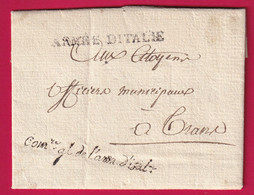 ARMÉE D'ITALIE
Aux Citoyens
officiers municipaux
à
Com.re gl de l'arm. d'Ital.